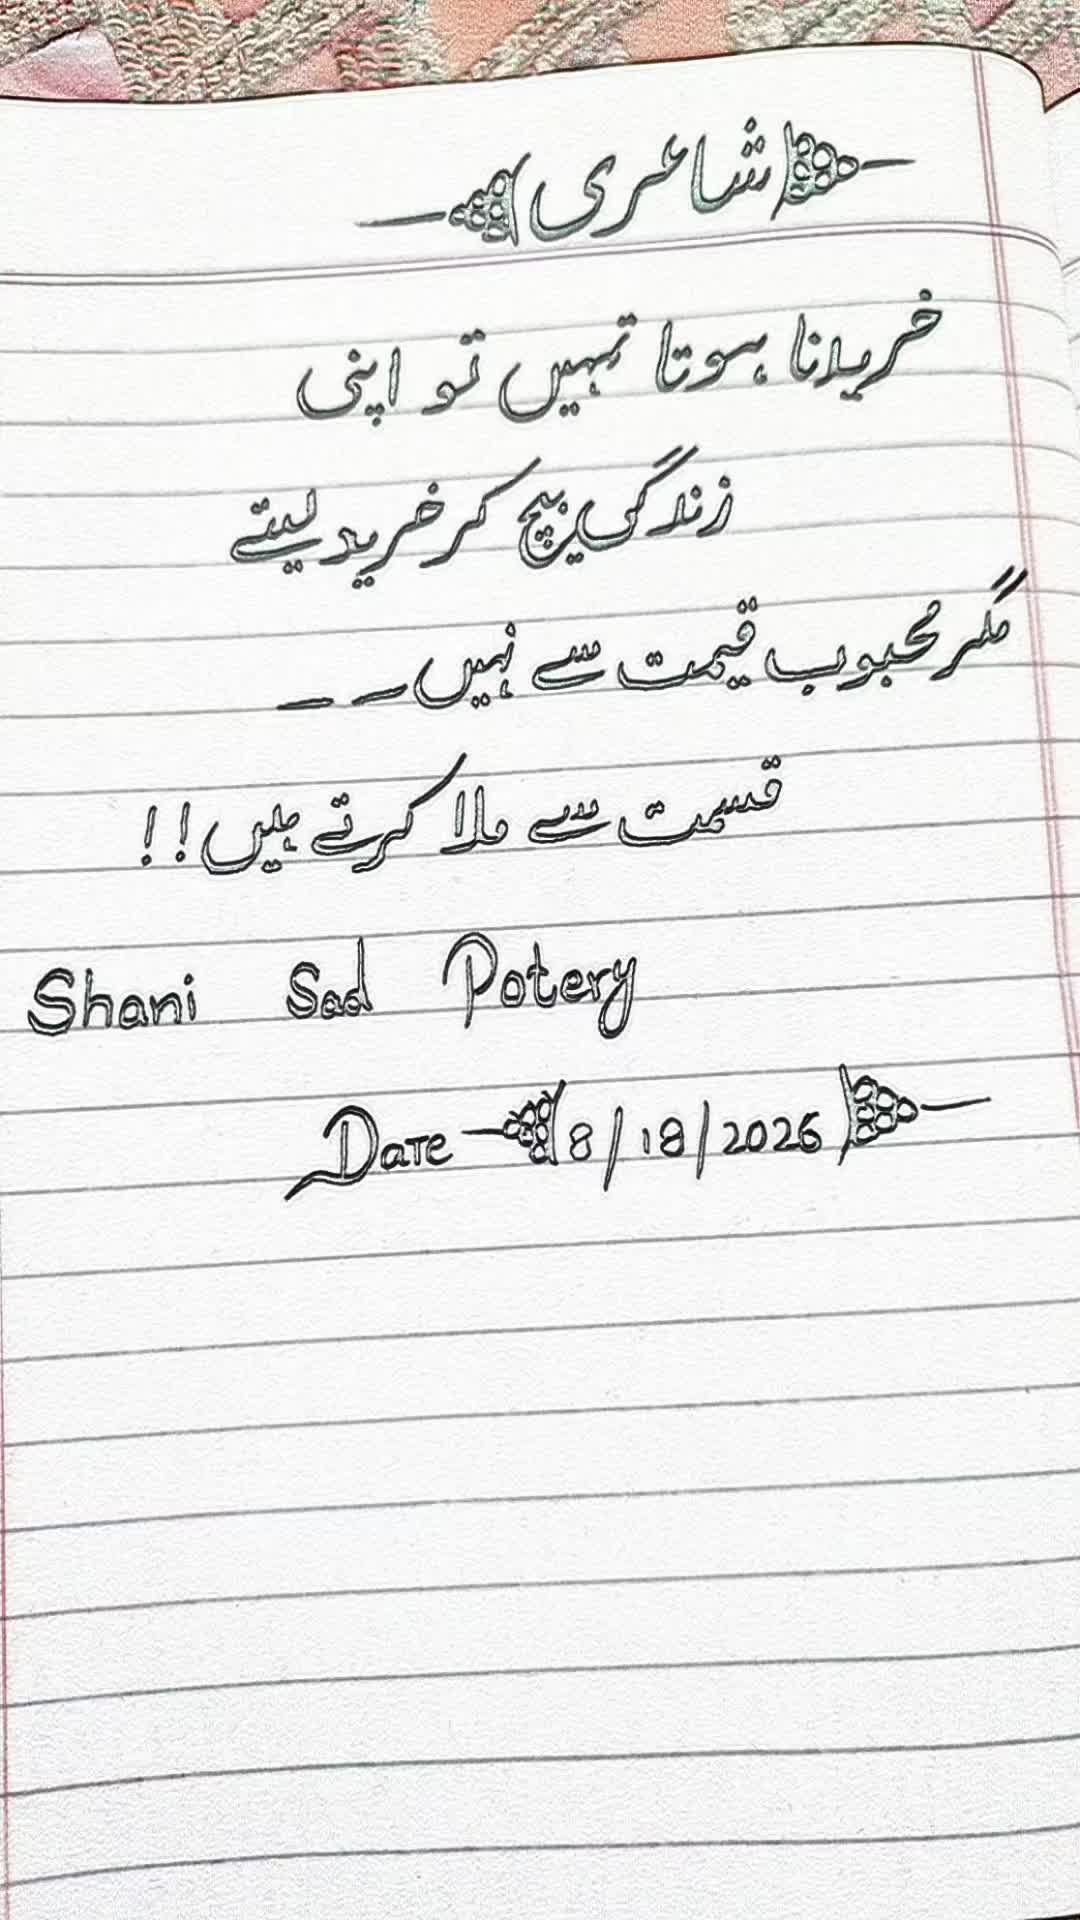 شاعری
خریدنا ہوتا تمہیں تو اپنی
زندگی بیچ کر خرید لیتے
مگر محبوب قیمت سے نہیں - -
قسمت سے ملا کرتے ہیں!!
Shani Sad Potery
Date 8/18/2026